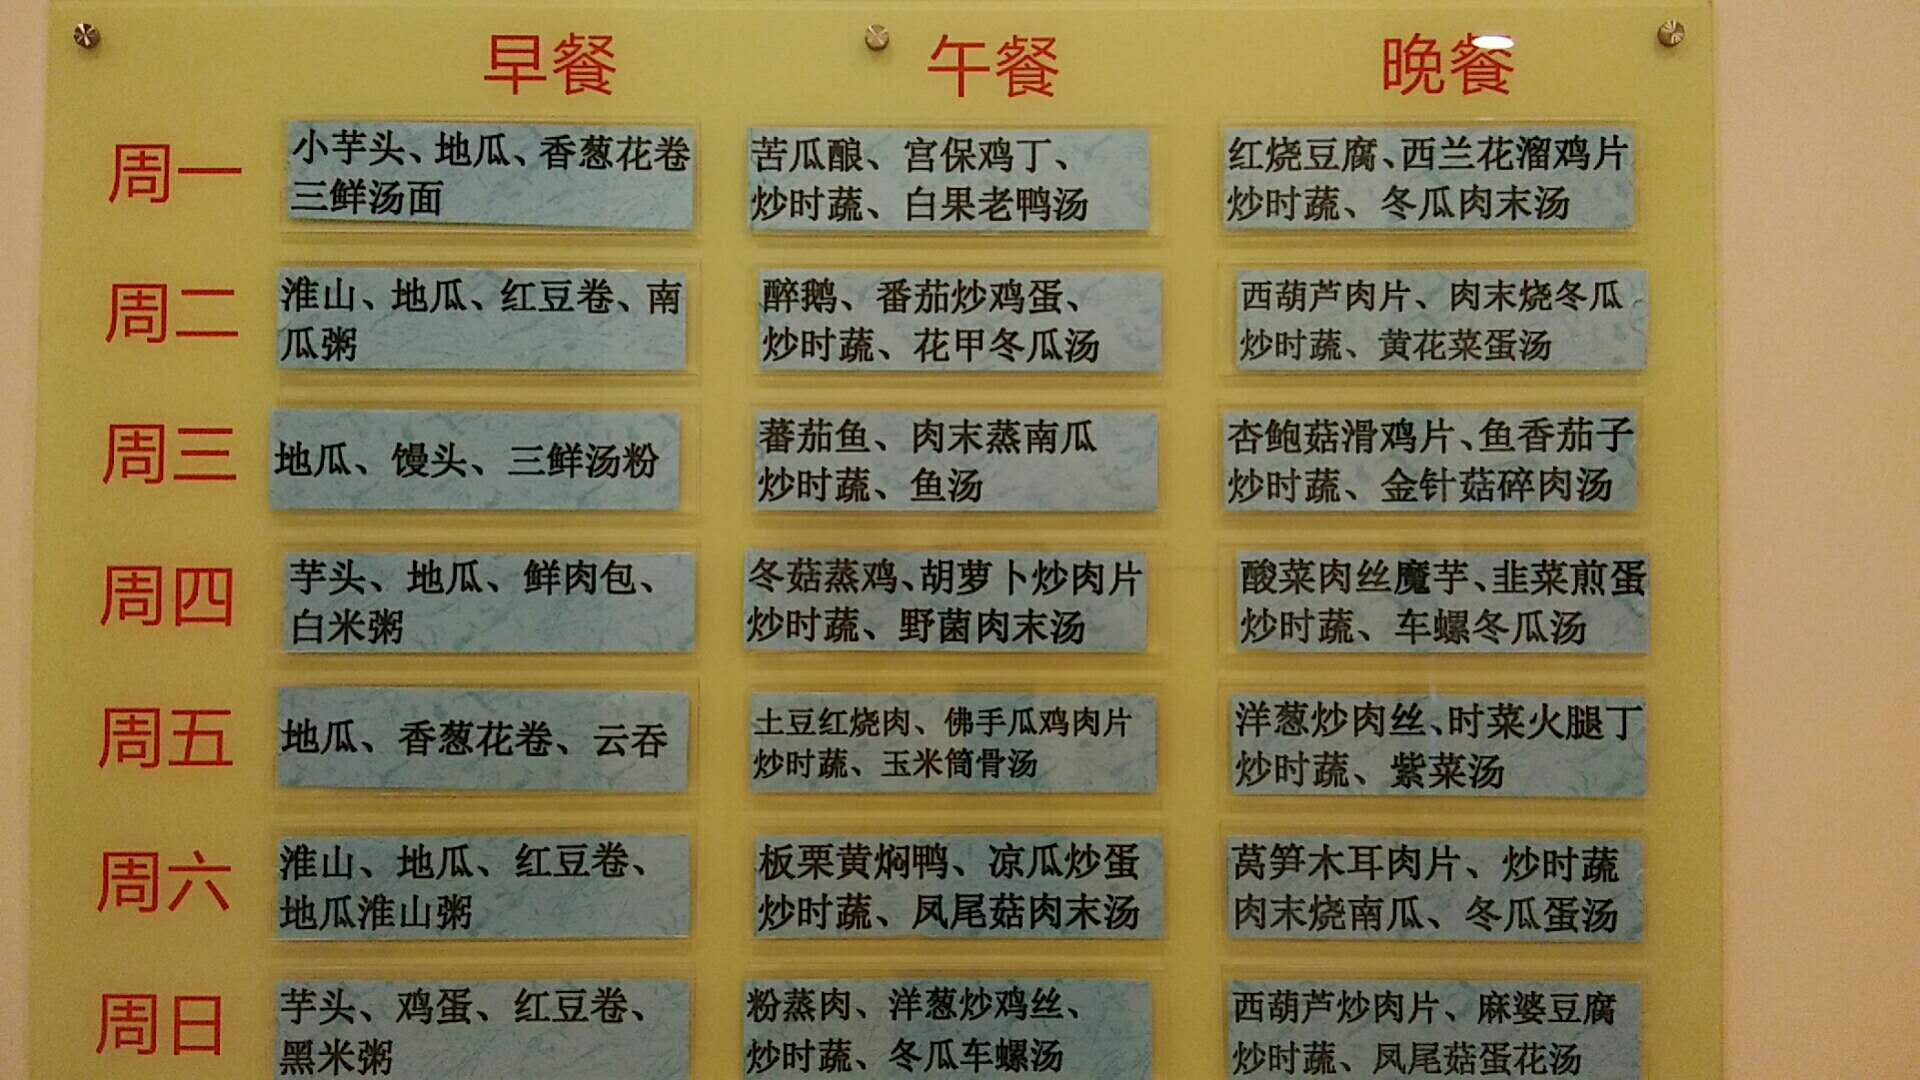 早餐 午餐 晚餐
周一
小芋头、地瓜、香葱花卷
三鲜汤面
苦瓜酿、宫保鸡丁、
炒时蔬、白果老鸭汤
红烧豆腐、西兰花溜鸡片
炒时蔬、冬瓜肉末汤
周二
淮山、地瓜、红豆卷、南
瓜粥
醉鹅、番茄炒鸡蛋、
炒时蔬、花甲冬瓜汤
西葫芦肉片、肉末烧冬瓜
炒时蔬、黄花菜蛋汤
周三
地瓜、馒头、三鲜汤粉
蕃茄鱼、肉末蒸南瓜
炒时蔬、鱼汤
杏鲍菇滑鸡片、鱼香茄子
炒时蔬、金针菇碎肉汤
周四
芋头、地瓜、鲜肉包、
白米粥
冬菇蒸鸡、胡萝卜炒肉片
炒时蔬、野菌肉末汤
酸菜肉丝魔芋、韭菜煎蛋
炒时蔬、车螺冬瓜汤
周五
地瓜、香葱花卷、云吞
土豆红烧肉、佛手瓜鸡肉片
炒时蔬、玉米筒骨汤
洋葱炒肉丝、时菜火腿丁
炒时蔬、紫菜汤
周六
淮山、地瓜、红豆卷、
地瓜淮山粥
板栗黄焖鸭、凉瓜炒蛋
炒时蔬、凤尾菇肉末汤
莴笋木耳肉片、炒时蔬
肉末烧南瓜、冬瓜蛋汤
周日
芋头、鸡蛋、红豆卷、
黑米粥
粉蒸肉、洋葱炒鸡丝、
炒时蔬、冬瓜车螺汤
西葫芦炒肉片、麻婆豆腐
炒时蔬、凤尾菇蛋花汤